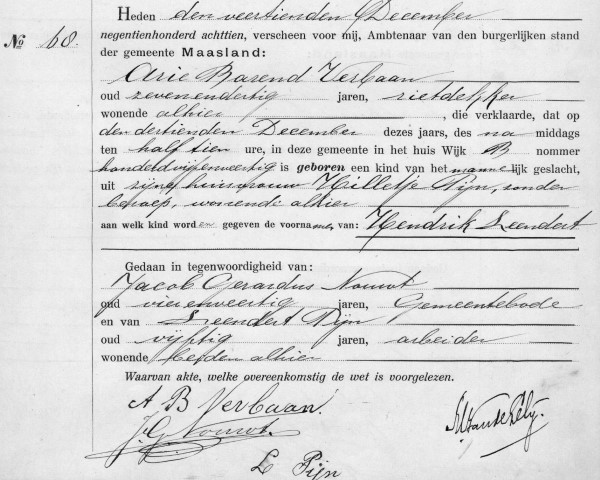 Heden den veertienden December
negentienhonderd achttien, verscheen voor mij, Ambtenaar van den burgerlijken stand
No. 68. der gemeente Maasland:
Arie Barend Verbaan
oud zevenendertig jaren, rietdekker
wonende alhier, die verklaarde, dat op
den dertienden December dezes jaars, des na middags
ten half tien ure, in deze gemeente in het huis Wijk B nommer
honderdvijfenveertig is geboren een kind van het mannelijk geslacht,
uit zijne huisvrouw Hilletje Pijn, zonder
beroep, wonende alhier
aan welk kind worden gegeven de voornamen, van: Hendrik Leendert
Gedaan in tegenwoordigheid van:
Jacob Gerardus Nouwt
oud vierenveertig jaren, Gemeentebode
en van Leendert Pijn
oud vijftig jaren, arbeider
wonende beiden alhier
Waarvan akte, welke overeenkomstig de wet is voorgelezen.
A B Verbaan.
J. G. Nouwt.
L Pijn